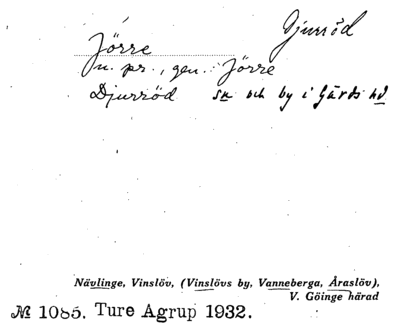 Djurröd
Jörre
n. pr., gen.: Jörre
Djurröd sn och by i Gärds hd.
Nävlinge, Vinslöv, (Vinslövs by, Vanneberga, Åraslöv),
V. Göinge härad
№ 1085. Ture Agrup 1932.